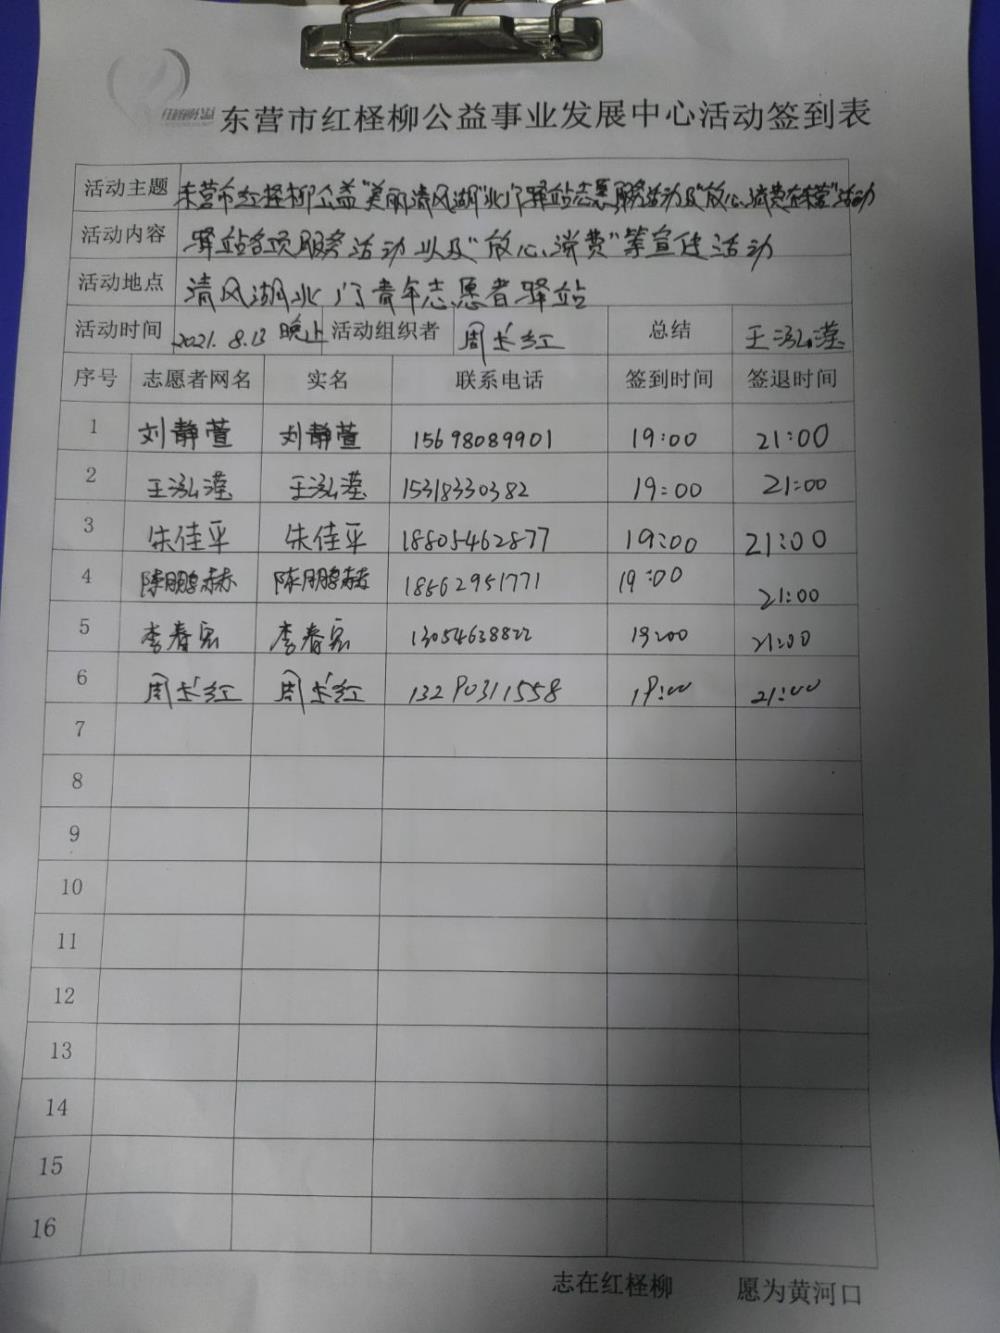 红柽柳公益
东营市红柽柳公益事业发展中心活动签到表
活动主题 东营市红柽柳公益“美丽清风湖”北门驿站志愿服务活动及“放心消费在东营”活动
活动内容 驿站各项服务活动以及“放心消费”等宣传活动
活动地点 清风湖北门青年志愿者驿站
活动时间 2021.8.13 晚上 活动组织者 周长红 总结 王泓滢
序号 志愿者网名 实名 联系电话 签到时间 签退时间
1 刘静萱 刘静萱 15698089901 19:00 21:00
2 王泓滢 王泓滢 15318330382 19:00 21:00
3 朱佳平 朱佳平 18805462877 19:00 21:00
4 陈鹏赫 陈鹏赫 18562951771 19:00 21:00
5 李春宏 李春宏 13054638822 19:00 21:00
6 周长红 周长红 13290311558 19:00 21:00
7
8
9
10
11
12
13
14
15
16
志在红柽柳 愿为黄河口